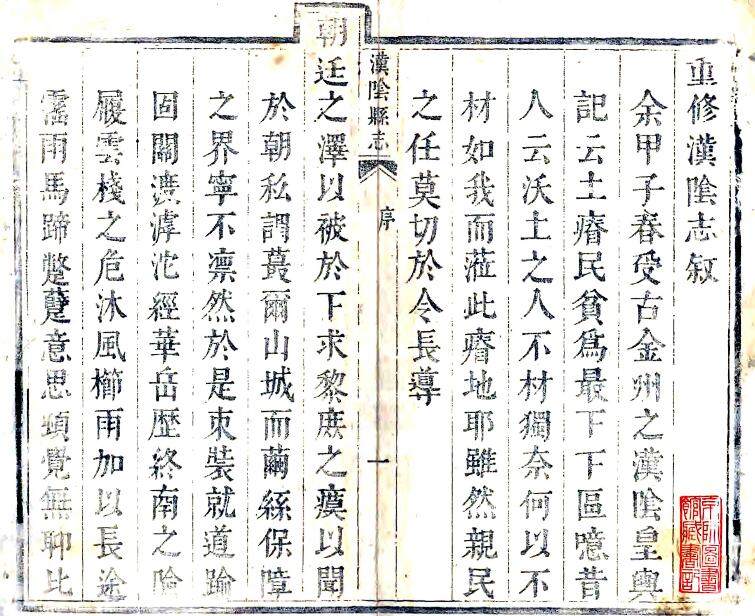 重修漢陰志叙
余甲子春受古金州之漢陰皇輿
記云土瘠民貧爲最下下區噫昔
人云沃土之人不材獨奈何以不
材如我而蒞此瘠地耶雖然親民
之任莫切於令長導
漢陰縣志
序
一
朝廷之澤以被於下求黎庶之瘼以聞
於朝私謂蕞爾山城而繭絲保障
之界寧不凛然於是束裝就道踰
固關滹沱經華岳歴終南之險
履雲棧之危沐風櫛雨加以長途
霪雨馬蹄蹩躠意思頓覺無聊比
京師圖書
館藏書記